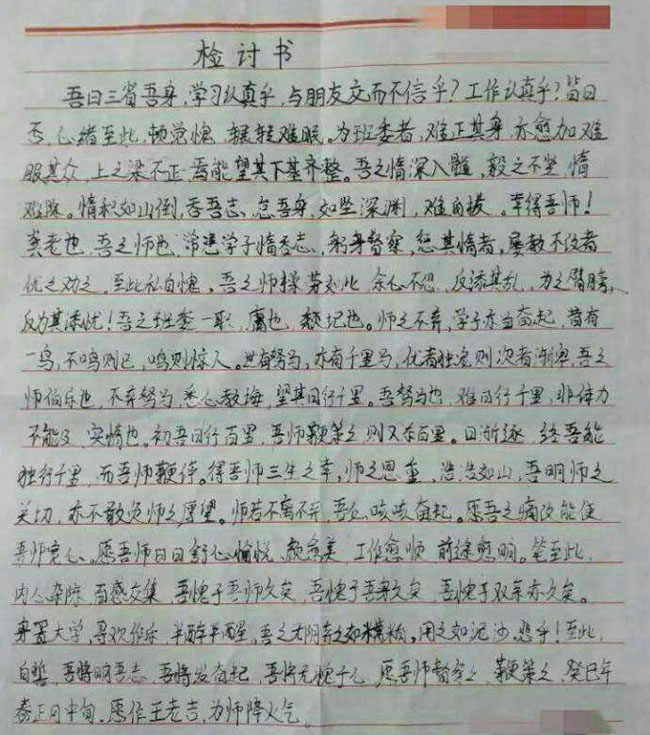 检讨书
吾日三省吾身,学习认真乎,与朋友交而不信乎?工作认真乎?皆曰
否,心绪至此,顿觉愧,辗转难眠。为班委者,难正其身,亦愈加难
服其众,上之梁不正,焉能望其下基齐整。吾之惰深入髓,毅之不坚,惰
难除。惰积如山倒,吞吾志、怠吾身,如坠深渊,难自拔。幸得吾师!
龚老也,吾之师也,常患学子惰吞志、躬身督察,惩其惰者,屡教不改者
忧之劝之,至此私自愧,吾之师操劳如此,余心不忍,反添其乱,为之臂膀,
反为其添忧!吾之班委一职,腐也,朽也。师之不弃,学子亦当奋起,昔有
一鸟,不鸣则已,鸣则惊人。世有驽马,亦有千里马,优者独宠则次者渐窄,吾之
师伯乐也,不弃驽马,悉心教诲,望其日行千里。吾驽马也,难日行千里,非体力
不能及,实惰也。初吾日行百里,吾师鞭策之,则又百里。日渐逐,终吾能
独行千里,而吾师鞭停。得吾师三生之幸,师之恩重,浩浩如山,吾明师之
关切,亦不敢负师之厚望。师若不离不弃,吾必咳咳奋起。愿吾之痛改能使
吾师宽心。愿吾师日日舒心愉悦,颜愈美,工作愈顺,前途愈明。笔至此,
内心杂陈,百感交集,吾愧于吾师久矣,吾愧于吾身久矣,吾愧于双亲亦久矣。
身置大学,寻欢作乐,半醉半醒,吾之光阴弃之如糟粕,用之如泥沙,悲乎!至此,
自誓,吾将明吾志,吾将发奋起,吾将无愧于心,愿吾师督察之、鞭策之,癸巳年
春正月中旬。愿作王老吉,为师降火气。